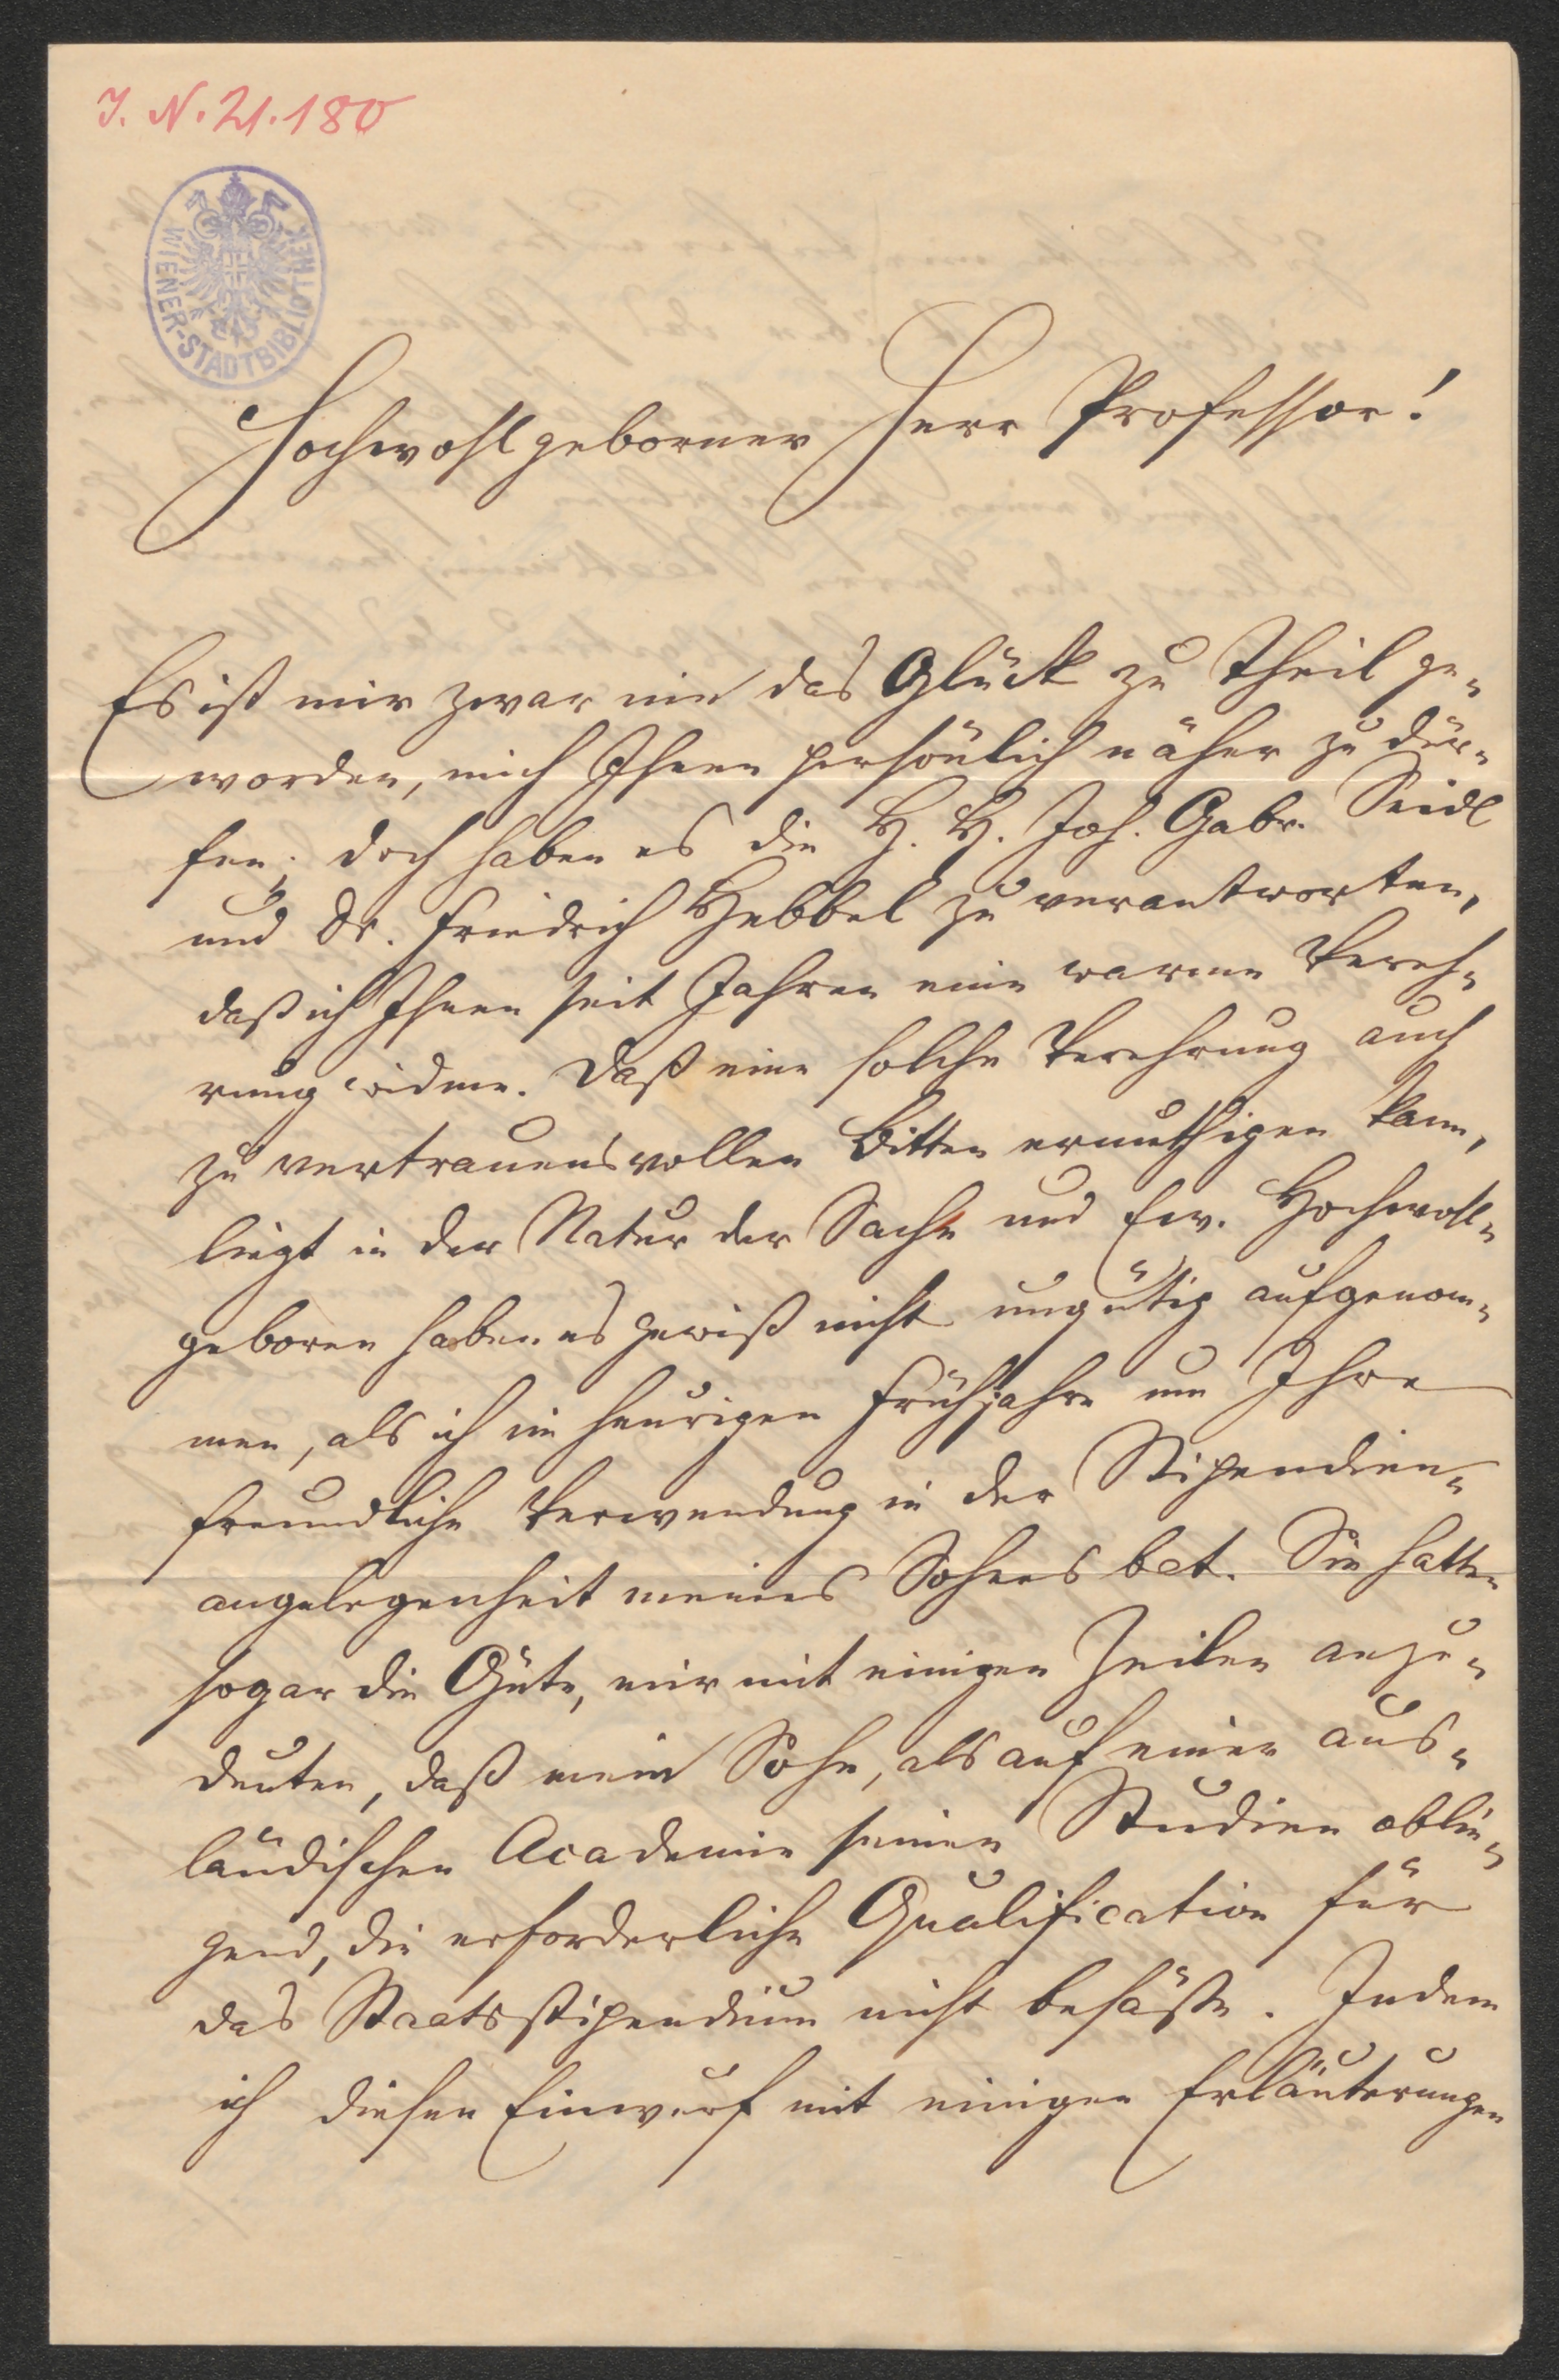 I. N. 21.180
WIENER-STADTBIBLIOTHEK
Hochwohlgeborner Herr Professor!
Es ist mir zwar nie das Glück zu Theil ge-
worden, mich Ihnen persönlich näher zu dür-
fen; doch haben es die H. H. Joh. Gabr. Seidl
und Dr. Friedrich Hebbel zu verantworten,
daß ich Ihnen seit Jahren eine warme Vereh-
rung widme. Daß eine solche Verehrung auch
zu vertrauensvollen Bitten ermuthigen kann,
liegt in der Natur der Sache und Ew. Hochwohl-
geboren haben es gewiß nicht ungütig aufgenom-
men, als ich im heurigen Frühjahre um Ihre
freundliche Verwendung in der Stipendien-
angelegenheit meines Sohnes bat. Sie hatten
sogar die Güte, mir mit einigen Zeilen anzu-
deuten, daß mein Sohn, als auf einer aus-
ländischen Academie seinen Studien oblie-
gend, die erforderliche Qualification für
das Staatsstipendium nicht besäße. Indem
ich diesen Einwurf mit einigen Erläuterungen